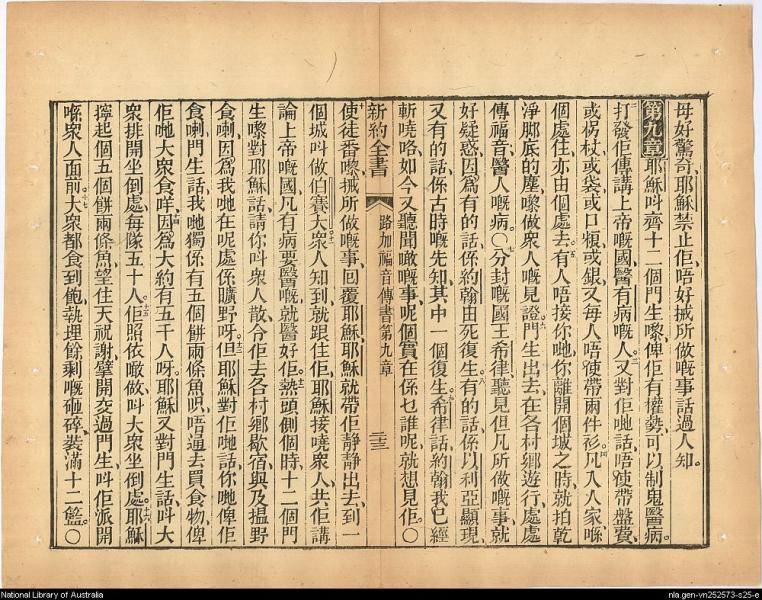 母好驚奇、耶穌禁止佢唔好搣所做嘅事話過人知。
第九章 耶穌呌齊十二個門生嚟、俾佢有權勢、可以制鬼醫病。
二打發佢傳講上帝嘅國、醫有病嘅人。三又對佢哋話、唔使帶盤費、
或柺杖、或袋、或口糧、或銀、又每人唔使帶兩件衫。四凡入人家、喺
個處住、亦由個處去。五有人唔接你哋、你離開個城之時、就拍乾
淨脚底的塵嚟做衆人嘅見證。六門生出去、在各村鄉遊行、處處
傳福音、醫人嘅病。〇七分封嘅國王希律、聽見但凡所做嘅事、就
好疑惑、因爲有的話、係約翰由死復生。八有的話、係以利亞顯現、
又有的話、係古時嘅先知、其中一個復生。九希律話、約翰我已經
斬嘵咯、如今又聽聞噉嘅事、呢個實在係乜誰呢、就想見佢。〇
新約全書 路加福音傳書第九章 二三
十使徒番嚟、搣所做嘅事、回覆耶穌、耶穌就帶佢靜靜出去、到一
個城呌做伯賽大。十一衆人知到就跟住佢、耶穌接嘵衆人、共佢講
論上帝嘅國、凡有病要醫嘅、就醫好佢。十二熱頭側個時、十二個門
生嚟對耶穌話、請你呌衆人散、令佢去各村鄉歇宿、與及揾野
食喇、因爲我哋在呢處係曠野呀。十三但耶穌對佢哋話、你哋俾佢
食喇、門生話、我哋獨係有五個餅兩條魚呮、唔通去買食物、俾
佢哋大衆食咩。十四因爲大約有五千人呀、耶穌又對門生話、呌大
衆排開坐倒處、每隊五十人。十五佢照依噉做、呌大衆坐倒處。十六耶穌
擰起個五個餅兩條魚、望住天祝謝、擘開交過門生、呌佢派開
喺衆人面前。十七大衆都食到飽、執埋餘剩嘅砸碎、裝滿十二籃。〇
National Library of Australia
nla.gen-vn252573-s25-e